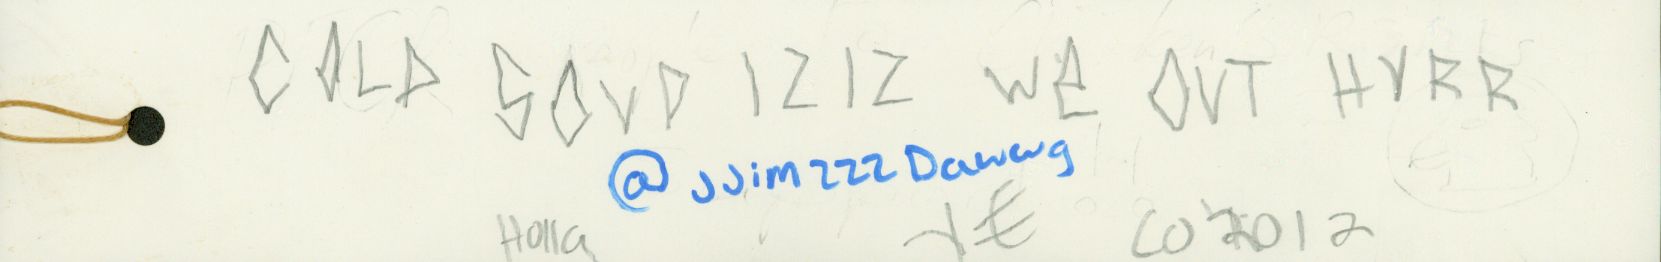 COLD SOVD 1212 WE OVT HVRR
@JJimzzzDawwg
Holla
CO 2012